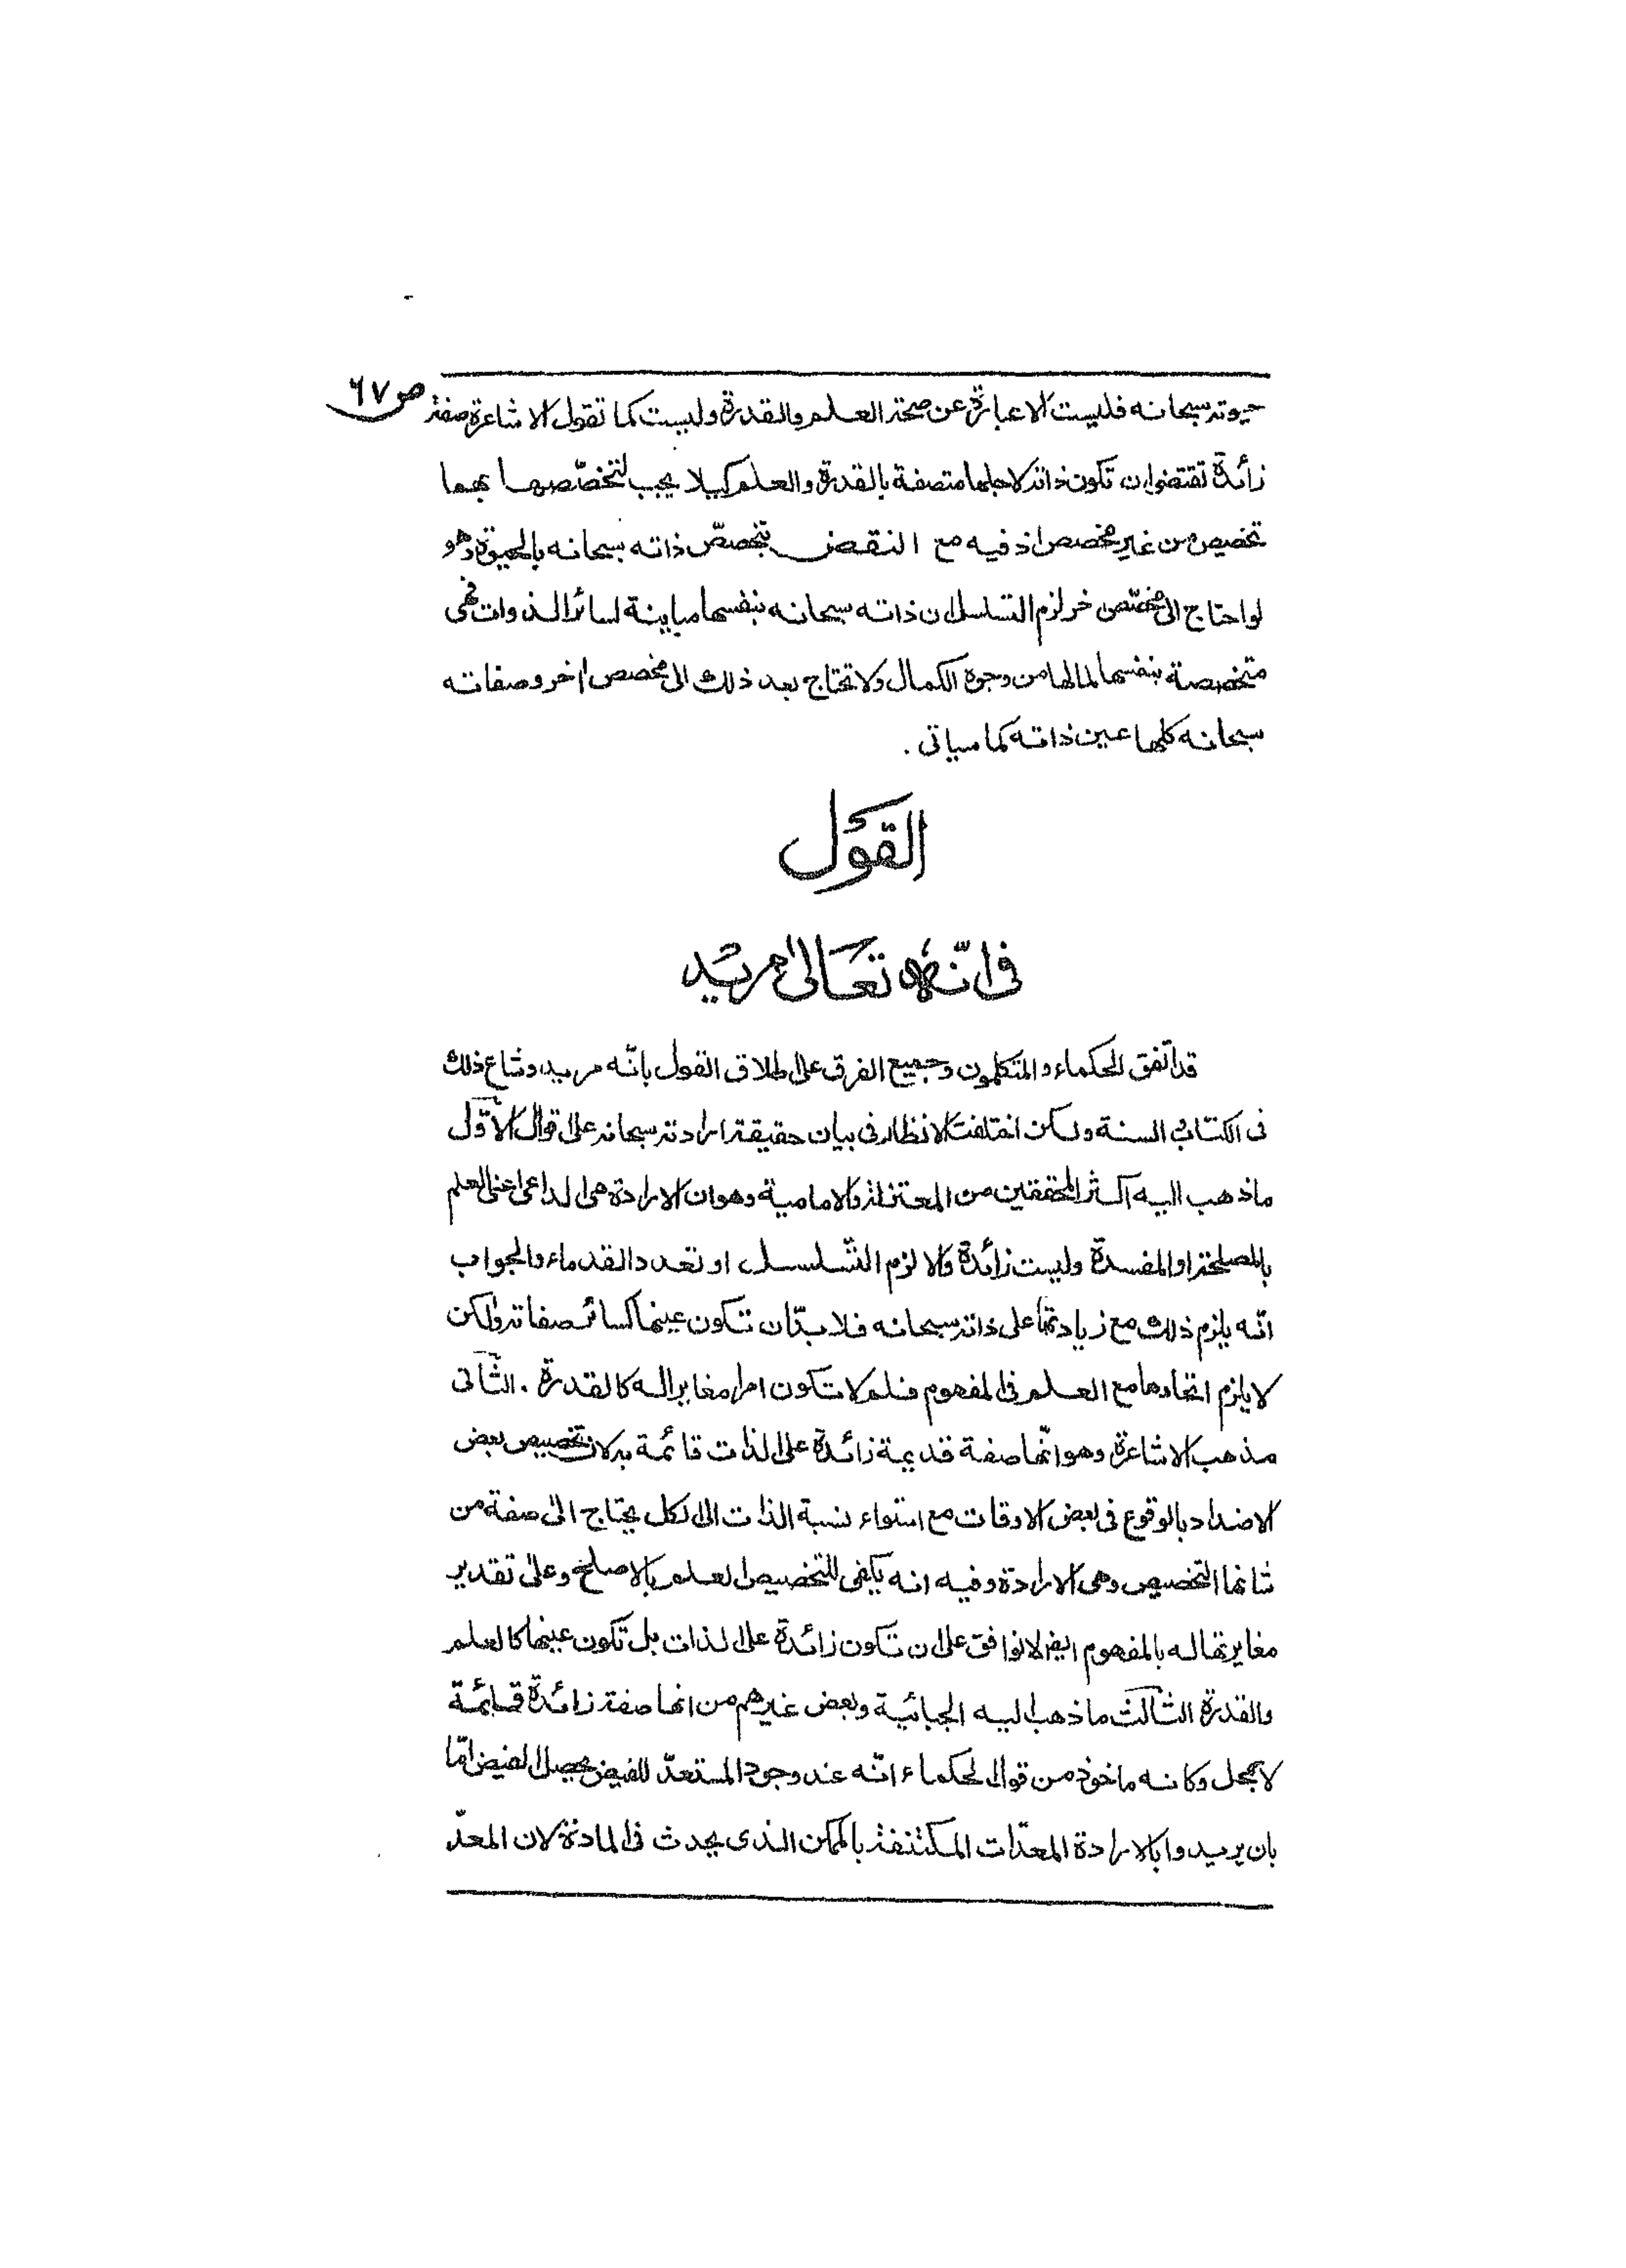 ص ٦٧
حيوته سبحانه فليست الا عبارة عن صحة العلم والقدرة وليست كما تقول الاشاعرة صفة
زائدة تقتضى ان تكون ذاته لاجلها متصفة بالقدرة والعلم كيلا يجب لتخصّصها بهما
تخصيص من غير مخصص اذ فيه مع النقض بتخصصّ ذاته سبحانه بالحيوة وهو
لو احتاج الى مخصّص خر لزم التسلسل ان ذاته سبحانه بنفسها مباينة لسائر الذوات فهى
متخصصة بنفسها لما لها من وجوه الكمال ولا تحتاج بعد ذلك الى مخصص اخر وصفاته
سبحانه كلها عين ذاته كما سياتى .
القَوَل
فى انّه تعَالى مريَد
قد اتّفق الحكماء و المتكلمون وجميع الفرق على اطلاق القول بانّه مريد وشاع ذلك
فى الكتاب و السنة ولكن اختلفت الانظار فى بيان حقيقة ارادته سبحانه على اقوال الاوّل
ما ذهب اليه اكثر المحققين من المعتزلة والامامية وهو ان الارادة هى الداعى اعنى العلم
بالمصلحة او المفسدة وليست زائدة والا لزم التّسلسل او تعدد القدماء والجواب
انّه يلزم ذلك مع زيادتها على ذاته سبحانه فلا بدّ ان تكون عينها كسائر صفاته ولكن
لا يلزم اتحادها مع العلم فى المفهوم فلم لا تكون امرا مغايرا له كالقدرة . الثّانى
مذهب الاشاعرة وهو انّها صفة قديمة زائدة على الذات قائمة به لان تخصيص بعض
الاضداد بالوقوع فى بعض الاوقات مع استواء نسبة الذات الى الكل يحتاج الى صفة من
شانها التخصيص وهى الارادة وفيه انه يكفى للتخصيص العلم بالاصلح وعلى تقدير
مغايرتها له بالمفهوم ايض لا نوافق على ان تكون زائدة على الذات بل تكون عينها كالعلم
والقدرة الثالث ما ذهب اليه الجبائية وبعض غيرهم من انها صفة زائدة قائمة
لا بمحل وكانه ماخوذ من قول الحكماء انّه عند وجود المستعدّ للفيض يحصل الفيض امّا
بان يريدوا بالارادة المعدّات المكتنفة بالممكن الذى يحدث فى المادة لان المعدّ